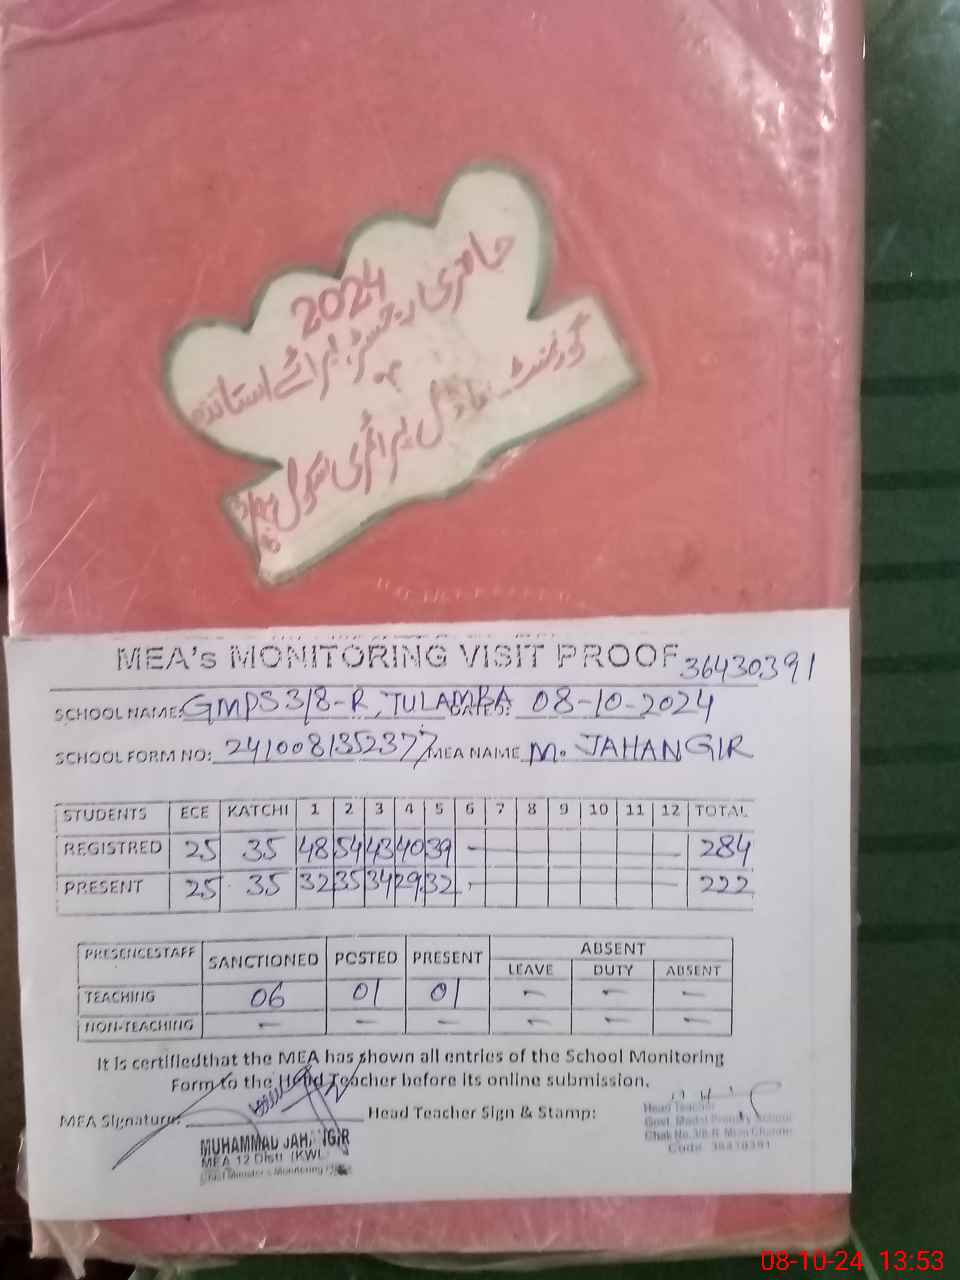 2024
حاضری رجسٹر برائے استاتذہ
گورنمنٹ ماڈل پرائمری سکول
MEA's MONITORING VISIT PROOF 36430391
SCHOOL NAME: GMPS 3/8-R, TULAMBA DATED: 08-10-2024
SCHOOL FORM NO: 241008135237 MEA NAME M. JAHANGIR
STUDENTS ECE KATCHI 1 2 3 4 5 6 7 8 9 10 11 12 TOTAL
REGISTRED 25 35 48 54 43 40 39 284
PRESENT 25 35 32 35 34 29 32 222
PRESENCESTAFF SANCTIONED POSTED PRESENT ABSENT
LEAVE DUTY ABSENT
TEACHING 06 01 01 - - -
NON-TEACHING - - - - - -
It is certifiedthat the MEA has shown all entries of the School Monitoring
Form to the Head Teacher before its online submission.
MEA Signature: Head Teacher Sign & Stamp:
MUHAMMAD JAHANGIR
MEA 12 Distt. (KWL
Chief Minister's Monitoring
Head Teacher
Govt. Model Primary School
Chak No.3/8-R Mian Channu
Code: 36430391
08-10-24 13:53